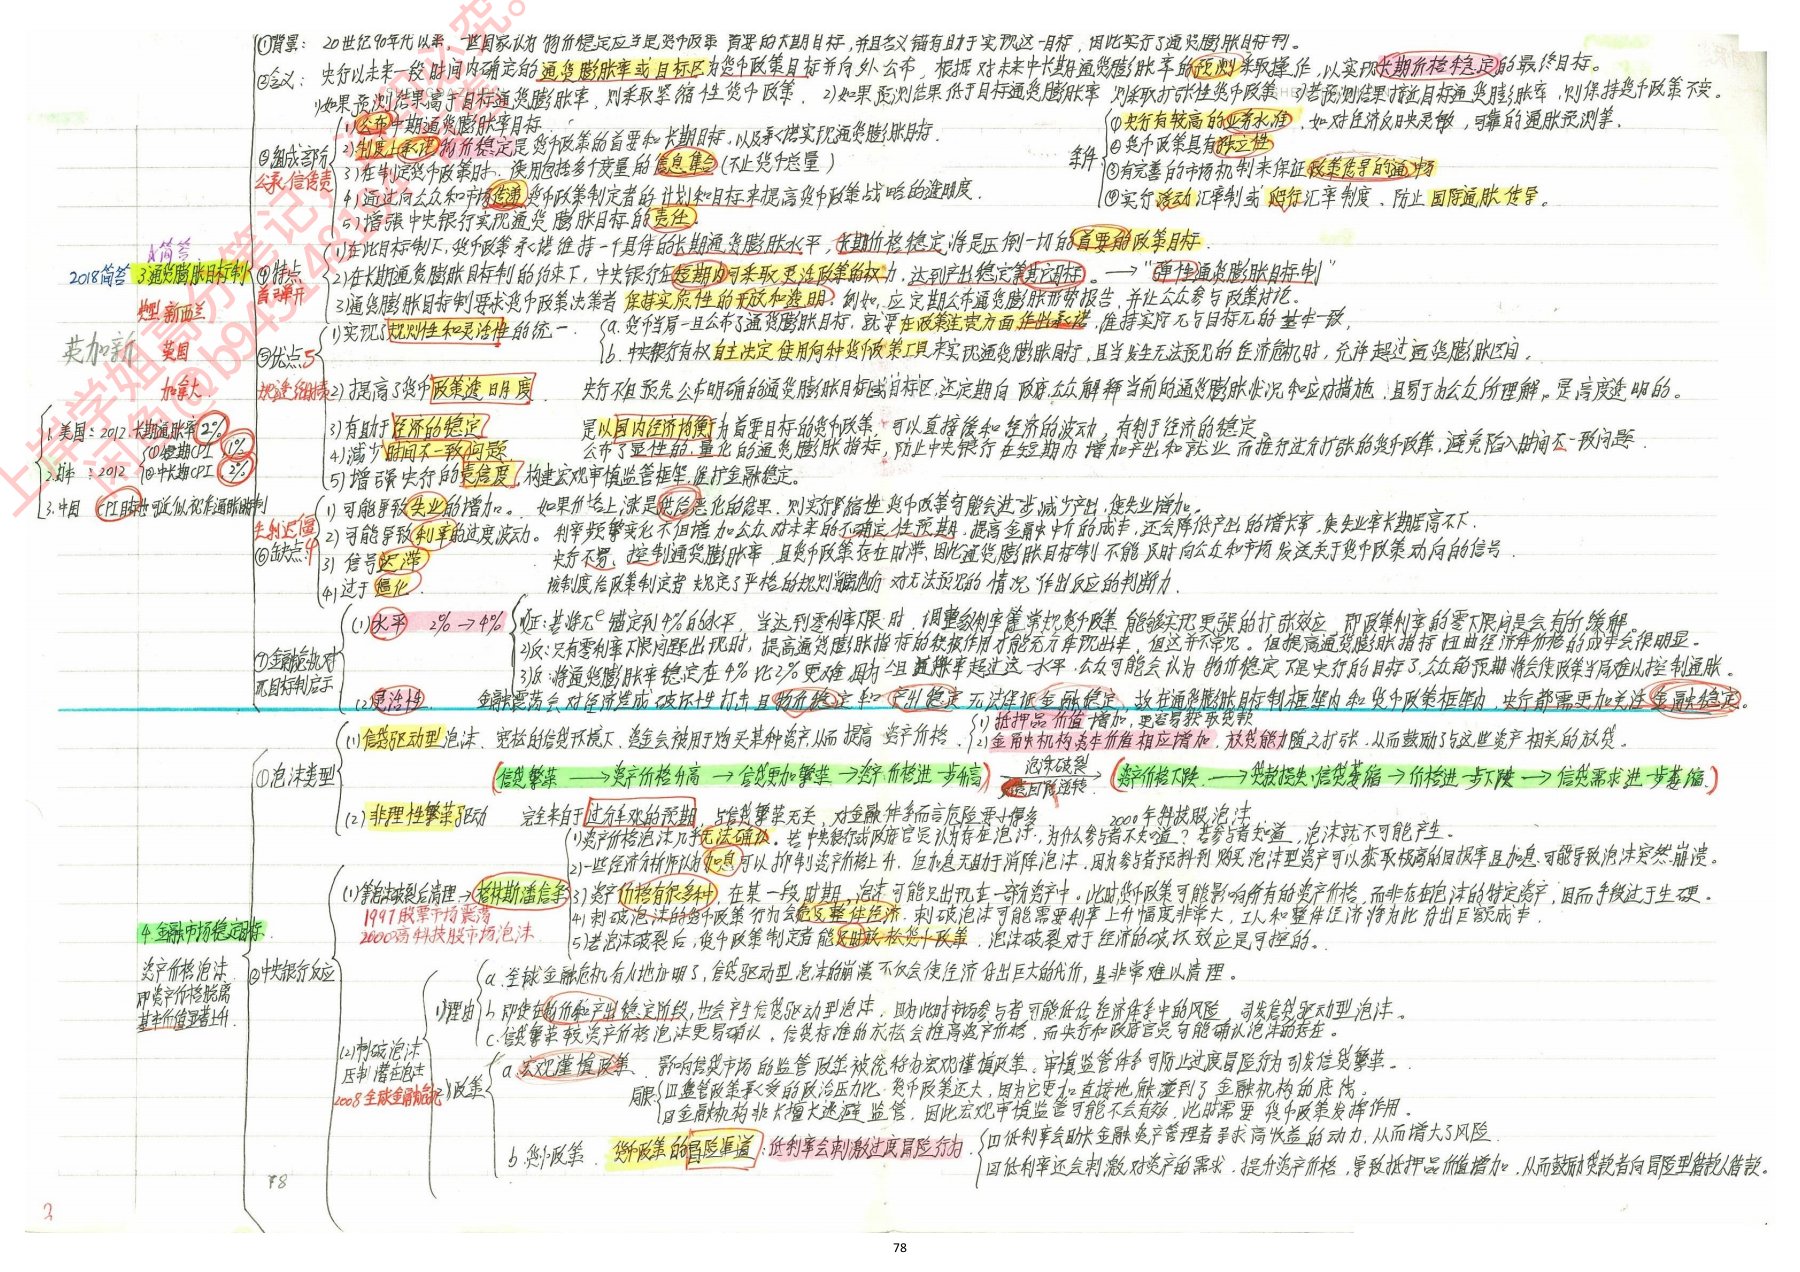 ①背景： 20世纪90年代以来，一些国家认为物价稳定应当是货币政策首要的长期目标，并且名义锚有且助于实现这一目标，因此实行了通货膨胀目标制。
②含义： 央行以未来一段时间内确定的通货膨胀率或目标区为货币政策目标并向外公布，根据对未来中长期通货膨胀率的预测采取操作，以实现长期价格稳定的最终目标。
1)如果预测结果高于目标通货膨胀率，则采取紧缩性货币政策， 2)如果预测结果低于目标通货膨胀率 则采取扩张性货币政策 3)若预测结果接近目标通货膨胀率，则保持货币政策不变。
③组成部分
公承信传责
1)公布中期通货膨胀率目标
2)制度上承诺物价稳定是货币政策的首要和长期目标，以及承诺实现通货膨胀目标．
3)在制定货币政策时，使用包括多个变量的信息集合（不止货币总量）
4)通过向公众和市场传递货币政策制定者的计划和目标来提高货币政策战略的透明度．
5)增强中央银行实现通货膨胀目标的责任．
条件
①央行有较高的业务水准，如对经济反映灵敏，可靠的通胀预测等．
②货币政策具有独立性
③有完善的市场机制来保证政策传导的通畅
④实行浮动汇率制或爬行汇率制度，防止国际通胀传导。
简答
2018简答 3.通货膨胀目标制
典型：新西兰
英国
加拿大
英加新
④特点
首弹开
1)在此目标制下，货币政策承诺维持一个具体的长期通货膨胀水平，长期价格稳定将是压倒一切的首要的政策目标．
2)在长期通货膨胀目标制的约束下，中央银行在短期内可采取灵活政策的权力，达到产出稳定等其它目标。→“弹性通货膨胀目标制”
3)通货膨胀目标制要求货币政策决策者保持实质性的开放和透明．例如，应定期公布通货膨胀形势报告，并让公众参与政策讨论。
⑤优点 5
1)实现了规则性和灵活性的统一．
a．货币当局一旦公布了通货膨胀目标，就要在政策连贯方面作出承诺，维持实际π与目标π的基本一致．
b．中央银行有权自主决定使用何种货币政策工具来实现通货膨胀目标，且当发生无法预见的经济危机时，允许超过通货膨胀区间．
2)提高了货币政策透明度． 央行不但预先公布明确的通货膨胀目标或目标区，还定期向政府、公众解释当前的通货膨胀状况和应对措施，且易于为公众所理解．是高度透明的。
3)有助于经济的稳定 是以国内经济均衡为首要目标的货币政策，可以直接缓和经济的波动，有利于经济的稳定。
4)减少时间不一致问题 公布了显性的、量化的通货膨胀指标，防止中央银行在短期内增加产出和就业而推行过分扩张的货币政策，避免陷入时间不一致问题．
5)增强央行的责信度，构建宏观审慎监管框架，维护金融稳定。
1.美国：2012．长期通胀率2%
2.日本：2012 ①短期CPI 1%
②中长期CPI 2%
3.中国 CPI目标也可近似视作通胀目标制
失利迟僵
⑥缺点 4
1)可能导致失业的增加。 如果价格上涨是供给恶化的结果，则实行紧缩性货币政策可能会进一步减少产出，使失业增加。
2)可能导致利率的过度波动。 利率频繁变化不但增加公众对未来的不确定性预期，提高金融中介的成本，还会降低产出的增长率，使失业率长期居高不下．
3)信号迟滞 央行不易控制通货膨胀率，且货币政策存在时滞，因此通货膨胀目标制不能及时向公众和市场发送关于货币政策动向的信号．
4)过于僵化． 该制度给政策制定者规定了严格的规则，限制了其对无法预见的情况作出反应的判断力．
⑦金融危机对
π目标制启示
(1)水平 2%→4%
1)正：若将πe锚定到4%的水平，当达到零利率下限时，调整名义利率等常规货币政策能够实现更强的扩张效应，即政策利率的零下限问题会有所缓解
2)反：只有零利率下限问题出现时，提高通货膨胀指标的积极作用才能充分体现出来，但这并不常见。但提高通货膨胀指标扭曲经济体价格的成本会很明显。
3)反：将通货膨胀率稳定在4%比2%更难，因为一旦通胀率超过这一水平，公众可能会认为物价稳定不是央行的目标了，公众的预期将会使政策当局难以控制通胀。
(2)灵活性 金融震荡会对经济造成破坏性打击，且物价稳定和产出稳定无法保证金融稳定，故在通货膨胀目标制框架内和货币政策框架内，央行都需更加关注金融稳定。
4.金融市场稳定目标
资产价格泡沫
即资产价格脱离
基本价值显著上升．
①泡沫类型
(1)信贷驱动型泡沫．宽松的信贷环境下，资金会被用于购买某种资产，从而提高资产价格．
1)抵押品价值增加，更容易获取贷款
2)金融机构资本价值相应增加，放贷能力随之扩张，从而鼓励了与这些资产相关的放贷。
(信贷繁荣→资产价格升高→信贷更加繁荣→资产价格进一步升高) 泡沫破裂 反馈回路逆转 (资产价格下跌→贷款损失：信贷萎缩→价格进一步下跌→信贷需求进一步萎缩．)
(2)非理性繁荣驱动 完全来自于过分乐观的预期，与信贷繁荣无关，对金融体系而言危险要小得多 2000年科技股泡沫
②中央银行反应
(1)等泡沫破裂后清理→格林斯潘信条
1997股票市场震荡
2000高科技股市场泡沫．
1)资产价格泡沫几乎无法确认。若中央银行或政府官员认为存在泡沫，为什么参与者不知道？若参与者知道，泡沫就不可能产生．
2)一些经济分析师认为加息可以抑制资产价格上升．但加息无助于消除泡沫，因为参与者预料到购买泡沫型资产可以获取极高的回报率且加息可能导致泡沫突然崩溃。
3)资产价格有很多种，在某一段时期，泡沫可能只出现在一部分资产中。此时货币政策可能影响所有的资产价格，而非存在泡沫的特定资产，因而手段过于生硬。
4)刺破泡沫的货币政策行为会危及整体经济．刺破泡沫可能需要利率上升幅度非常大，工人和整体经济将为此付出巨额成本．
5)若泡沫破裂后，货币政策制定者能及时放松货币政策，泡沫破裂对于经济的破坏效应是可控的。
(2)刺破泡沫
压制潜在泡沫
2008全球金融危机
1)理由
a．全球金融危机有力地证明了，信贷驱动型泡沫的崩溃不仅会使经济付出巨大的代价，且非常难以清理。
b．即使在物价和产出稳定阶段，也会产生信贷驱动型泡沫．因为此时市场参与者可能低估经济体系中的风险，引发信贷驱动型泡沫。
c．信贷繁荣较资产价格泡沫更易确认．信贷标准的放松会推高资产价格，而央行和政府官员可能确认泡沫的存在。
2)政策
a．宏观谨慎政策． 影响信贷市场的监管政策被统称为宏观谨慎政策。审慎监管体系可防止过度冒险行为引发信贷繁荣。
局限
[1]监管政策承受的政治压力比货币政策还大，因为它更加直接地触碰到了金融机构的底线。
[2]金融机构非常擅长逃避监管，因此宏观审慎监管可能不会有效，此时需要货币政策发挥作用。
b．货币政策． 货币政策的冒险渠道：低利率会刺激过度冒险行为．
[1]低利率会助长金融资产管理者寻求高收益的动力，从而增大了风险．
[2]低利率还会刺激对资产的需求，提升资产价格，导致抵押品价值增加，从而鼓励贷款者向冒险型借款人借款。
78
3
78